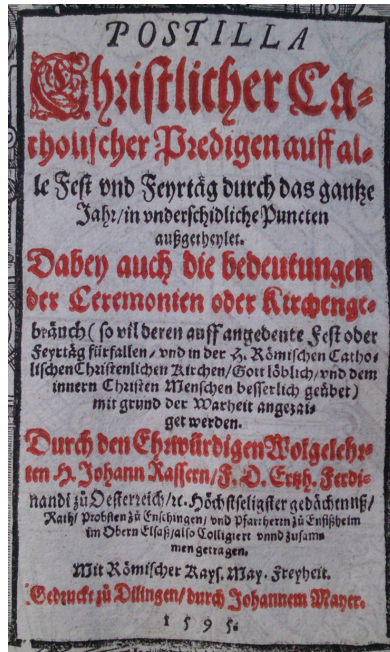 POSTILLA
Christlicher Ca-
tholischer Predigen auff al-
le Fest vnd Feyrtäg durch das gantze
Jahr/in vnderschidliche Puncten
außgetheylet.
Dabey auch die bedeutungen
der Ceremonien oder Kirchenge-
bräuch (so vil deren auff angedente Fest oder
Feyrtäg fürfallen/ vnd in der H. Römischen Catho-
lischen Christenlichen Kirchen/Gott löblich/vnd dem
innern Christen Menschen besserlich geübet)
mit grund der Warheit angezai-
get werden.
Durch den Ehrwürdigen Wolgelehr-
ten H. Johann Rassern/F. D. Ertzh. Ferdi-
nandi zů Oesterreich/ꝛc. Höchstseligster gedächtnuß/
Rath/ Probsten zů Enschingen/ vnd Pfarrherrn zů Ensißheim
im Obern Elsaß/also Colligiert vnnd zusam-
men getragen.
Mit Römischer Kays. May. Freyheit.
Gedruckt zů Dilingen/durch Johannem Mayer.
1595.